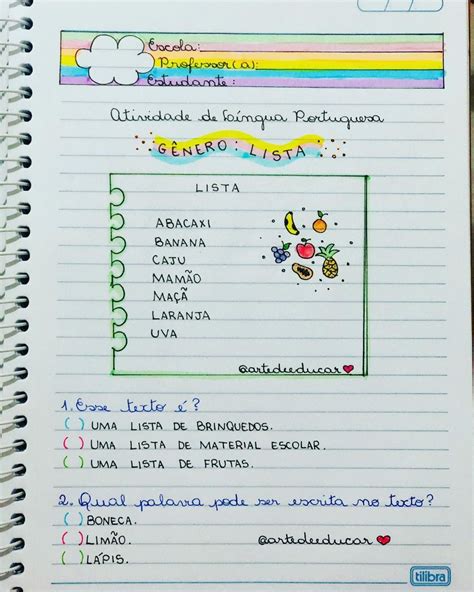 Escola:
Professor(a):
Estudante:
Atividade de Língua Portuguesa
GÊNERO: LISTA
LISTA
ABACAXI
BANANA
CAJU
MAMÃO
MAÇÃ
LARANJA
UVA
@artedeeducar
1. Esse texto é?
( ) UMA LISTA DE BRINQUEDOS.
( ) UMA LISTA DE MATERIAL ESCOLAR.
( ) UMA LISTA DE FRUTAS.
2. Qual palavra pode ser escrita no texto?
( ) BONECA.
( ) LIMÃO. @artedeeducar
( ) LÁPIS.
tilibra